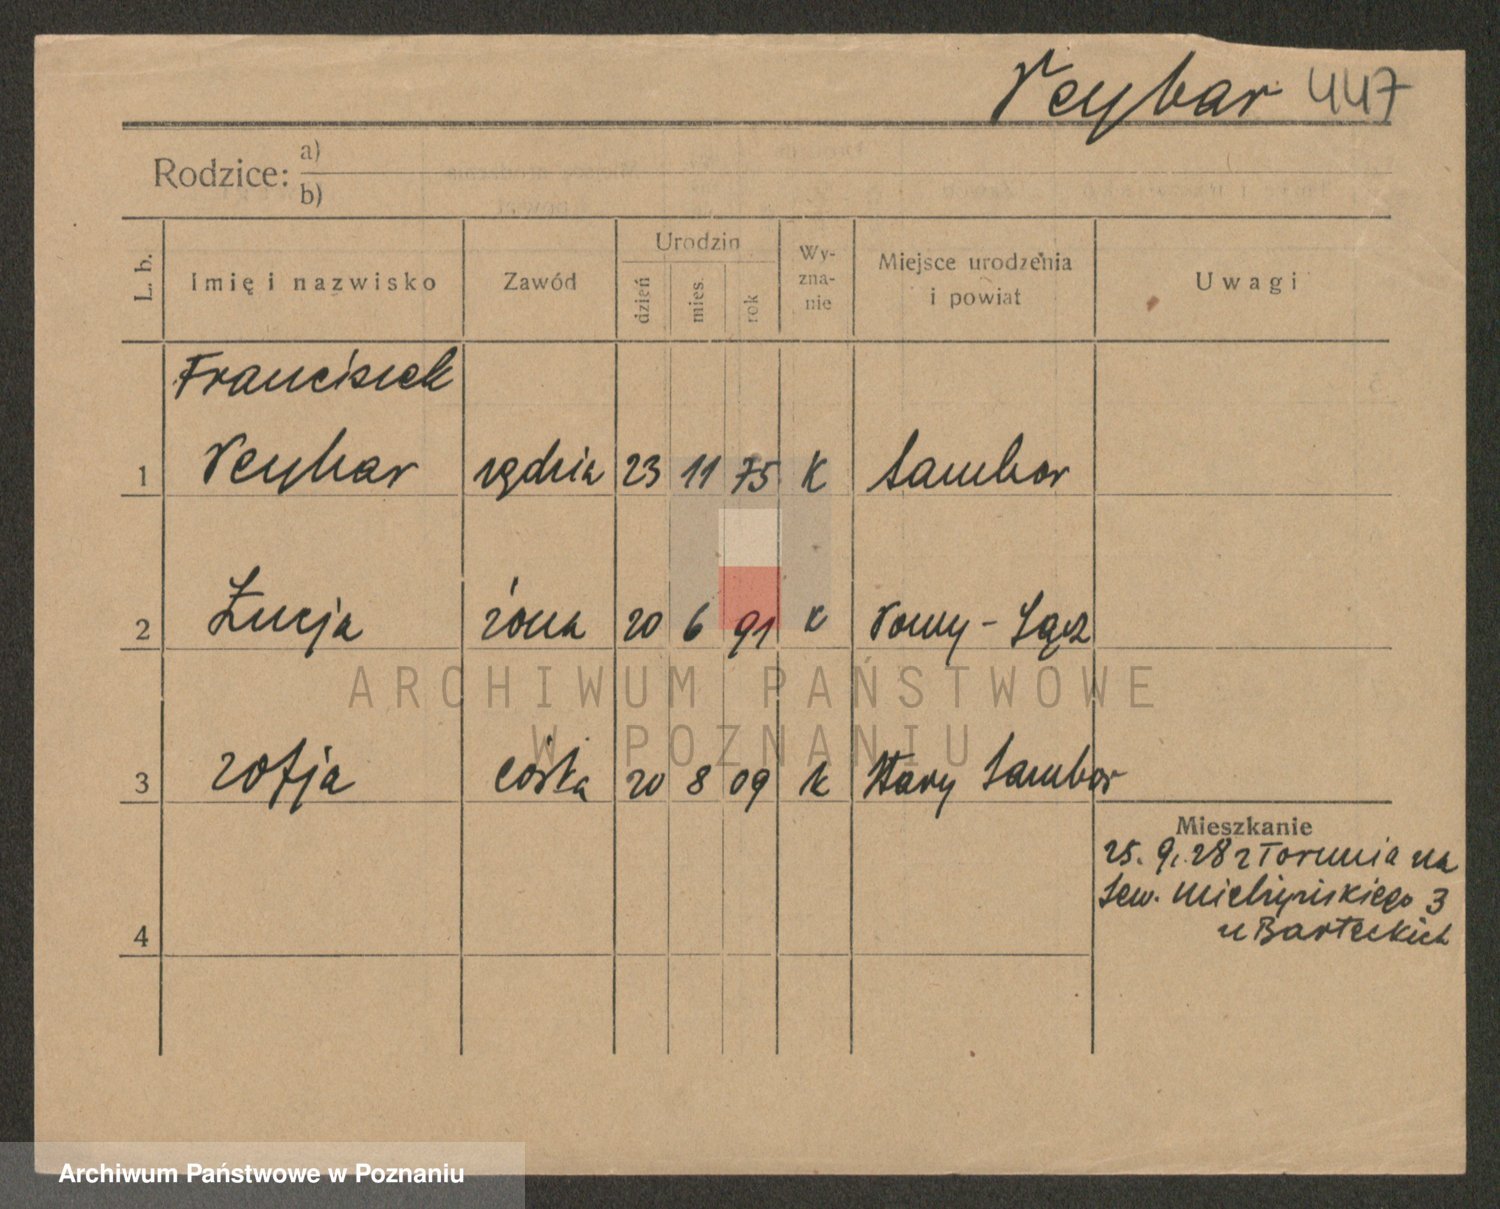 Neybar 447
Rodzice: a)
b)
L. b. Imię i nazwisko Zawód Urodzin dzień mies. rok Wy-zna-nie Miejsce urodzenia i powiat Uwagi
Franciszek
1 Neybar sędzia 23 11 75 K Sambor
2 Łucja żona 20 6 91 k Nowy-Sącz
ARCHIWUM PAŃSTWOWE
W POZNANIU
3 Zofja córka 20 8 09 k Stary Sambor
Mieszkanie
25. 9. 28 z Torunia na
Sew. Mielżyńskiego 3
4 u Barteckich
Archiwum Państwowe w Poznaniu